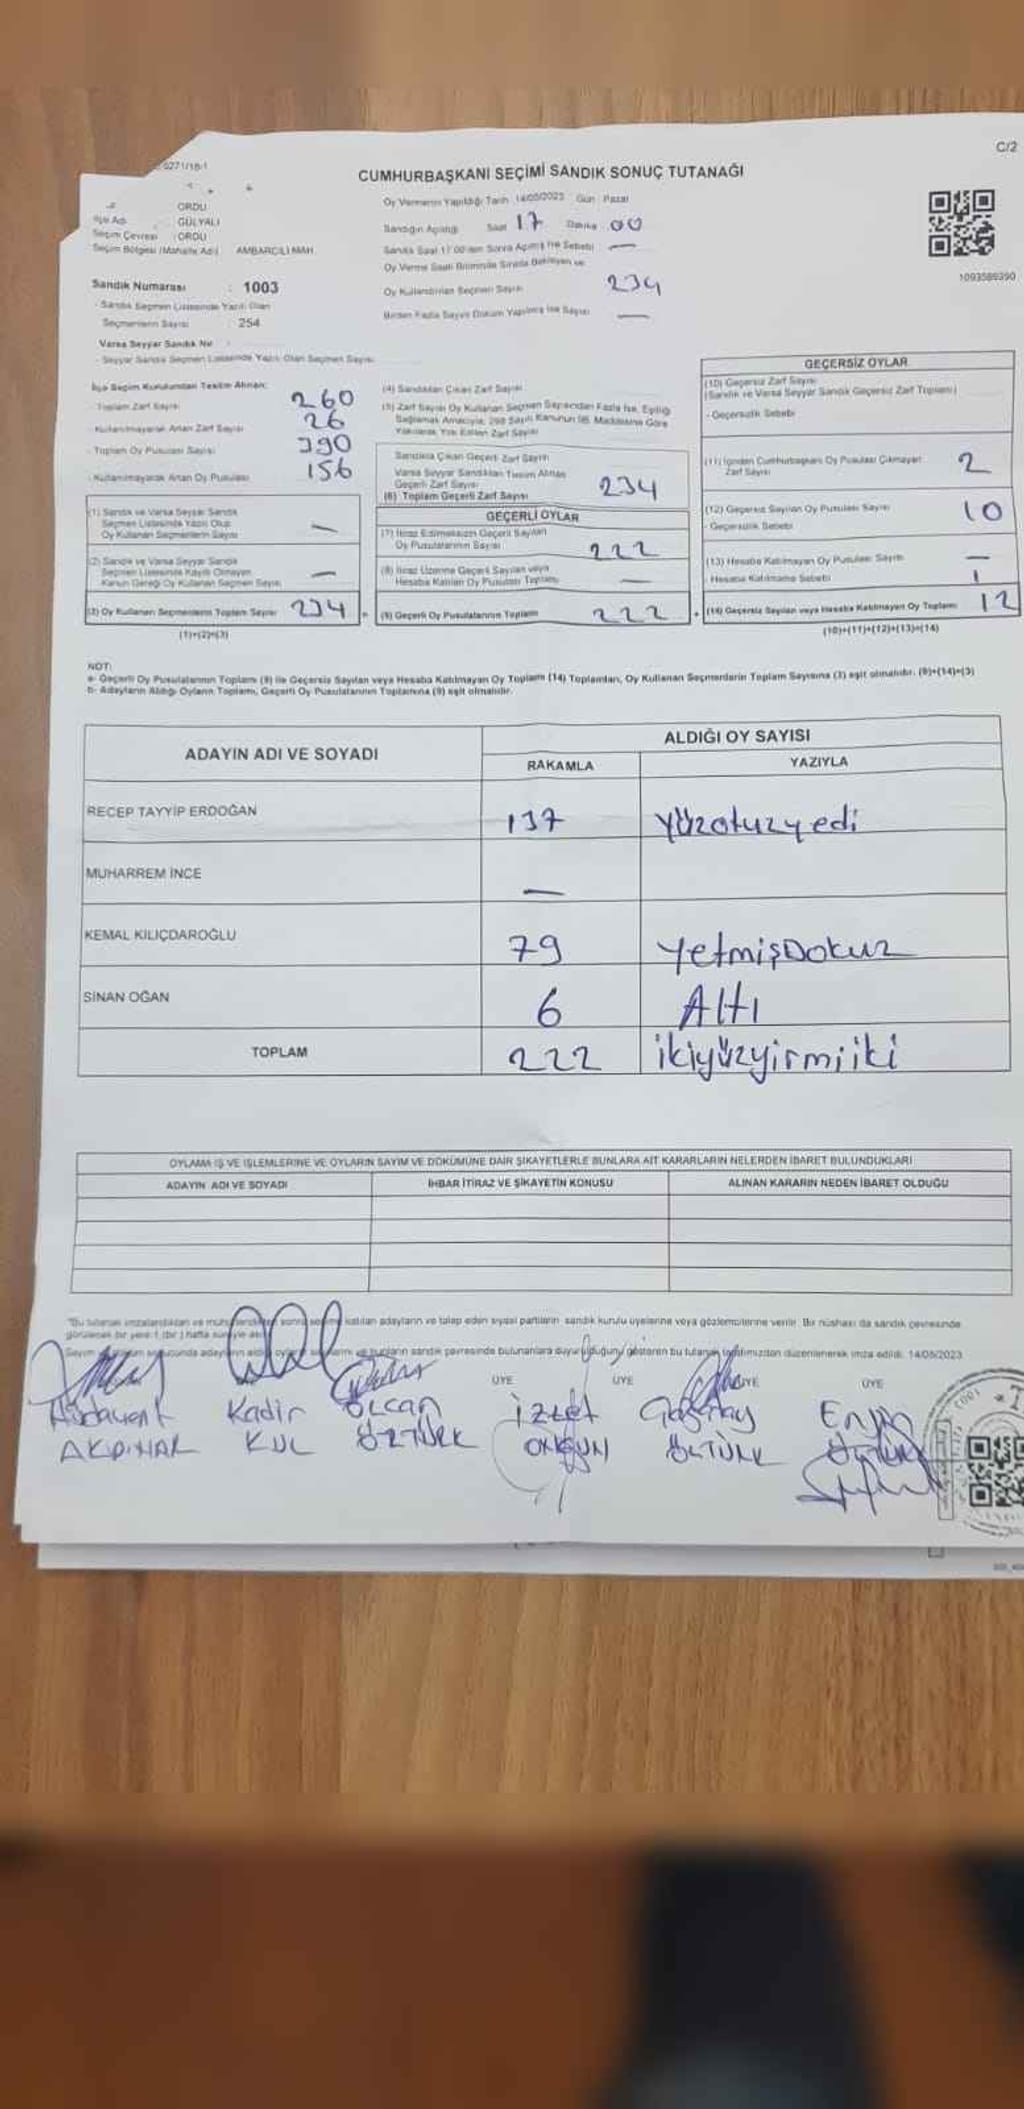 C/2
0271/18-1
CUMHURBAŞKANI SEÇİMİ SANDIK SONUÇ TUTANAĞI
ORDU
İlçe Adı GÜLYALI
Seçim Çevresi : ORDU
Seçim Bölgesi (Mahalle Adı) AMBARCILI MAH.
Sandık Numarası : 1003
- Sandık Seçmen Listesinde Yazılı Olan
Seçmenlerin Sayısı : 254
Varsa Seyyar Sandık No :
- Seyyar Sandık Seçmen Listesinde Yazılı Olan Seçmen Sayısı
Oy Vermenin Yapıldığı Tarih 14/05/2023 Gün : Pazar
Sandığın Açıldığı Saat 17 Dakika 00
Sandık Saat 17:00'den Sonra Açılmış İse Sebebi —
Oy Verme Saati Bitiminde Sırada Bekleyen ve
Oy Kullandırılan Seçmen Sayısı 234
Birden Fazla Sayım Döküm Yapılmış İse Sayısı —
1093589390
İlçe Seçim Kurulundan Teslim Alınan:
- Toplam Zarf Sayısı 260
- Kullanılmayarak Artan Zarf Sayısı 26
- Toplam Oy Pusulası Sayısı 390
- Kullanılmayarak Artan Oy Pusulası 156
(1) Sandık ve Varsa Seyyar Sandık
Seçmen Listesinde Yazılı Olup
Oy Kullanan Seçmenlerin Sayısı —
(2) Sandık ve Varsa Seyyar Sandık
Seçmen Listesinde Kayıtlı Olmayan
Kanun Gereği Oy Kullanan Seçmen Sayısı —
(3) Oy Kullanan Seçmenlerin Toplam Sayısı 234 =
(1)+(2)=(3)
(4) Sandıktan Çıkan Zarf Sayısı
(5) Zarf Sayısı Oy Kullanan Seçmen Sayısından Fazla İse, Eşitliği
Sağlamak Amacıyla, 298 Sayılı Kanunun 98. Maddesine Göre
Yakılarak Yok Edilen Zarf Sayısı
Sandıkta Çıkan Geçerli Zarf Sayısı
Varsa Seyyar Sandıktan Teslim Alınan
Geçerli Zarf Sayısı
(6) Toplam Geçerli Zarf Sayısı 234
GEÇERLİ OYLAR
(7) İtiraz Edilmeksizin Geçerli Sayılan
Oy Pusulalarının Sayısı 222
(8) İtiraz Üzerine Geçerli Sayılan veya
Hesaba Katılan Oy Pusulası Toplamı —
(9) Geçerli Oy Pusulalarının Toplamı 222 +
GEÇERSİZ OYLAR
(10) Geçersiz Zarf Sayısı
(Sandık ve Varsa Seyyar Sandık Geçersiz Zarf Toplamı)
- Geçersizlik Sebebi
(11) İçinden Cumhurbaşkanı Oy Pusulası Çıkmayan
Zarf Sayısı 2
(12) Geçersiz Sayılan Oy Pusulası Sayısı 10
- Geçersizlik Sebebi
(13) Hesaba Katılmayan Oy Pusulası Sayısı —
- Hesaba Katılmama Sebebi
(14) Geçersiz Sayılan veya Hesaba Katılmayan Oy Toplamı 12
(10)+(11)+(12)+(13)=(14)
NOT:
a- Geçerli Oy Pusulalarının Toplamı (9) ile Geçersiz Sayılan veya Hesaba Katılmayan Oy Toplamı (14) Toplamları, Oy Kullanan Seçmenlerin Toplam Sayısına (3) eşit olmalıdır. (9)+(14)=(3)
b- Adayların Aldığı Oyların Toplamı, Geçerli Oy Pusulalarının Toplamına (9) eşit olmalıdır.
ADAYIN ADI VE SOYADI
ALDIĞI OY SAYISI
RAKAMLA YAZIYLA
RECEP TAYYİP ERDOĞAN 137 Yüzotuzyedi
MUHARREM İNCE —
KEMAL KILIÇDAROĞLU 79 YetmişDokuz
SİNAN OĞAN 6 Altı
TOPLAM 222 ikiyüzyirmiiki
OYLAMA İŞ VE İŞLEMLERİNE VE OYLARIN SAYIM VE DÖKÜMÜNE DAİR ŞİKAYETLERLE BUNLARA AİT KARARLARIN NELERDEN İBARET BULUNDUKLARI
ADAYIN ADI VE SOYADI İHBAR İTİRAZ VE ŞİKAYETİN KONUSU ALINAN KARARIN NEDEN İBARET OLDUĞU
"Bu tutanak imzalandıktan ve sonra seçime katılan adayların ve talep eden siyasi partilerin sandık kurulu üyelerine veya gözlemcilerine verilir. Bir nüshası da sandık çevresinde
görülecek bir yere 1 (bir) hafta süreyle asılır.
Sayım sonucunda adayların aldığı oyların bunların sandık çevresinde bulunanlara duyurulduğunu gösteren bu tutanak tarafımızdan düzenlenerek imza edildi. 14/05/2023
ÜYE ÜYE ÜYE ÜYE
Kadir Olcan İzzet
AKPINAR KUL ÖZTÜRK ONGUN ÖZTÜRK